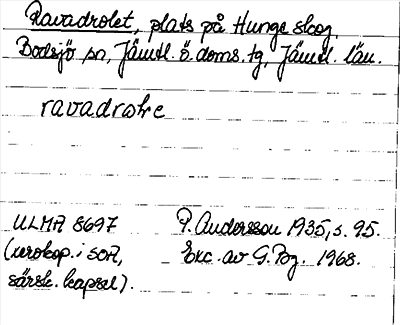 Ravadrolet, plats på Hunge skog.
Bodsjö sn, Jämtl. ö. doms. tg, Jämtl. län.
ravadrəłe
ULMA 8697 P. Andersson 1935, s. 95.
(xerokop. i SOA, Exc. av G. Pzg. 1968.
särsk. kapsel).